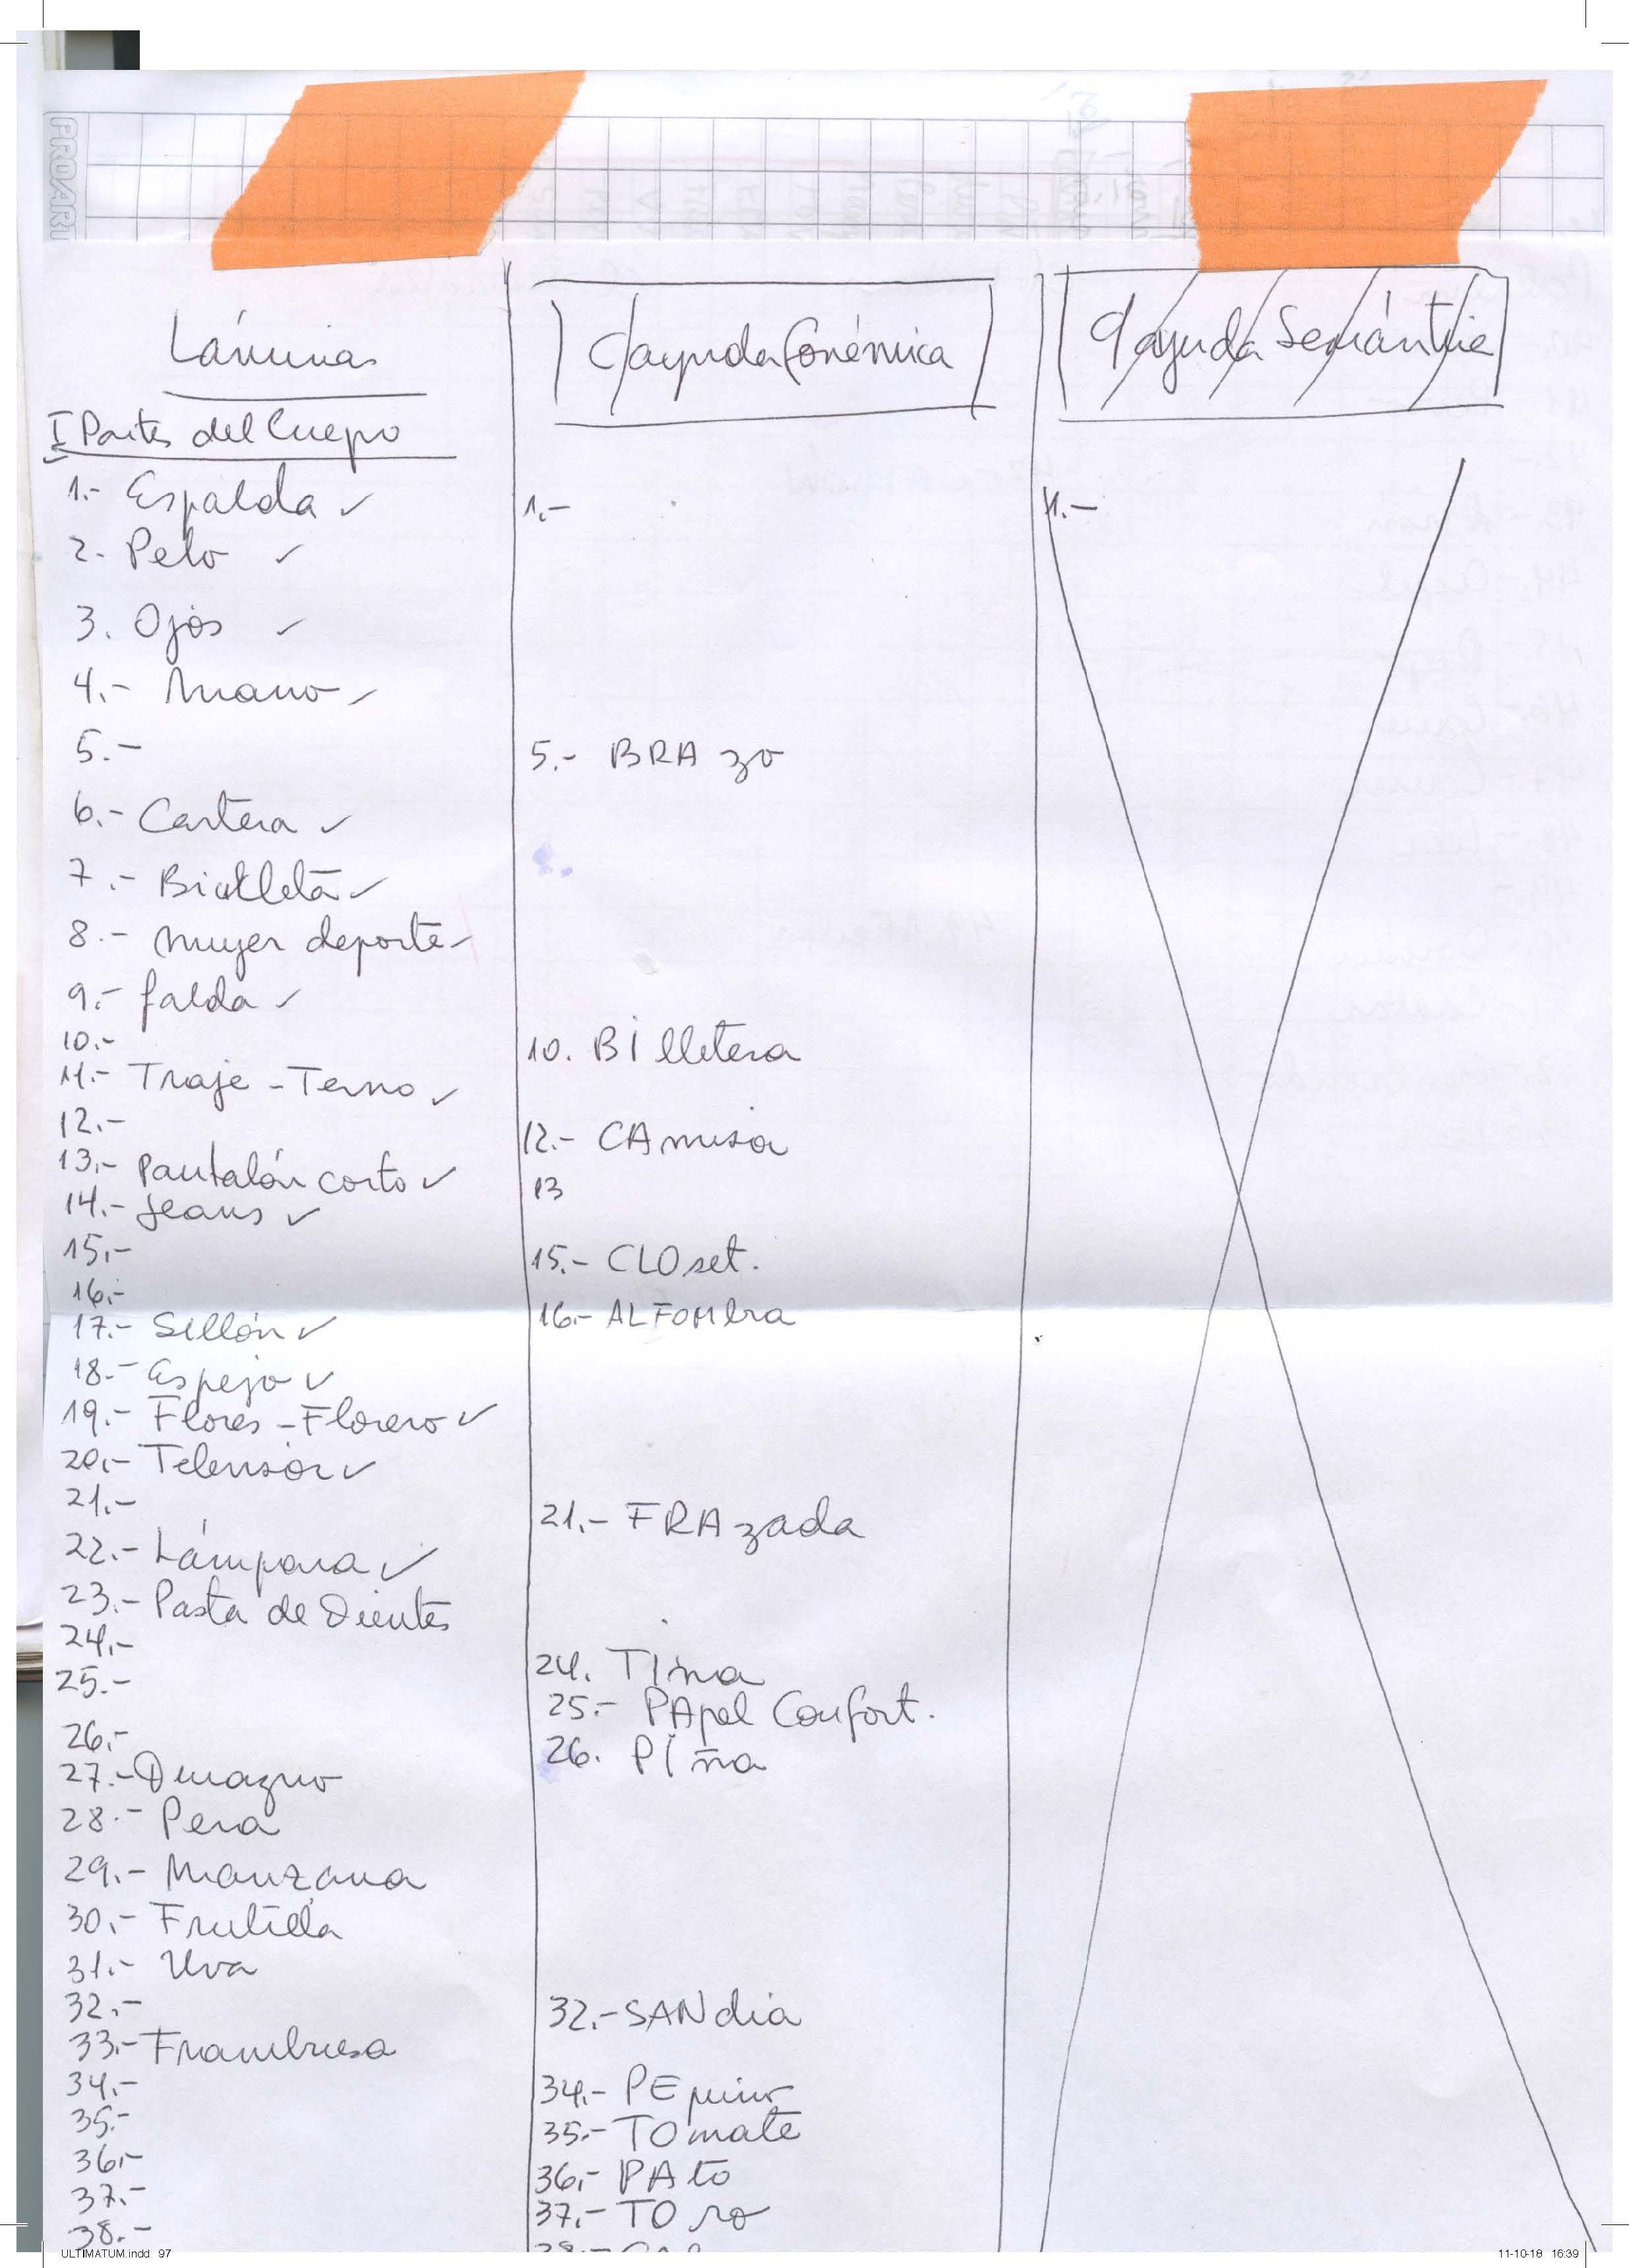 PROARI
Láminas
C/ayuda fonémica
C/ayuda Semántica
I Partes del Cuerpo
1.- Espalda ✓
1.-
1.-
2.- Pelo ✓
3. Ojos ✓
4.- Mano ✓
5.-
5.- BRAzo
6.- Cartera ✓
7.- Bicicleta ✓
8.- Mujer deporte ✓
9.- falda ✓
10.-
10. BIlletera
11.- Traje - Terno ✓
12.-
12.- CAmisa
13.- Pantalón corto ✓
13
14.- Jeans ✓
15.-
15.- CLOset.
16.-
16.- ALFOMbra
17.- Sillón ✓
18.- Espejo ✓
19.- Flores - Florero ✓
20.- Televisor ✓
21.-
21.- FRAzada
22.- Lámpara ✓
23.- Pasta de Dientes
24.-
24. TIna
25.-
25.- PApel Confort.
26.-
26. PIña
27.- Durazno
28.- Pera
29.- Manzana
30.- Frutilla
31.- Uva
32.-
32.- SANdia
33.- Frambuesa
34.-
34.- PEpino
35.-
35.- TOmate
36.-
36.- PAto
37.-
37.- TOro
38.-
ULTIMATUM.indd 97
11-10-18 16:39